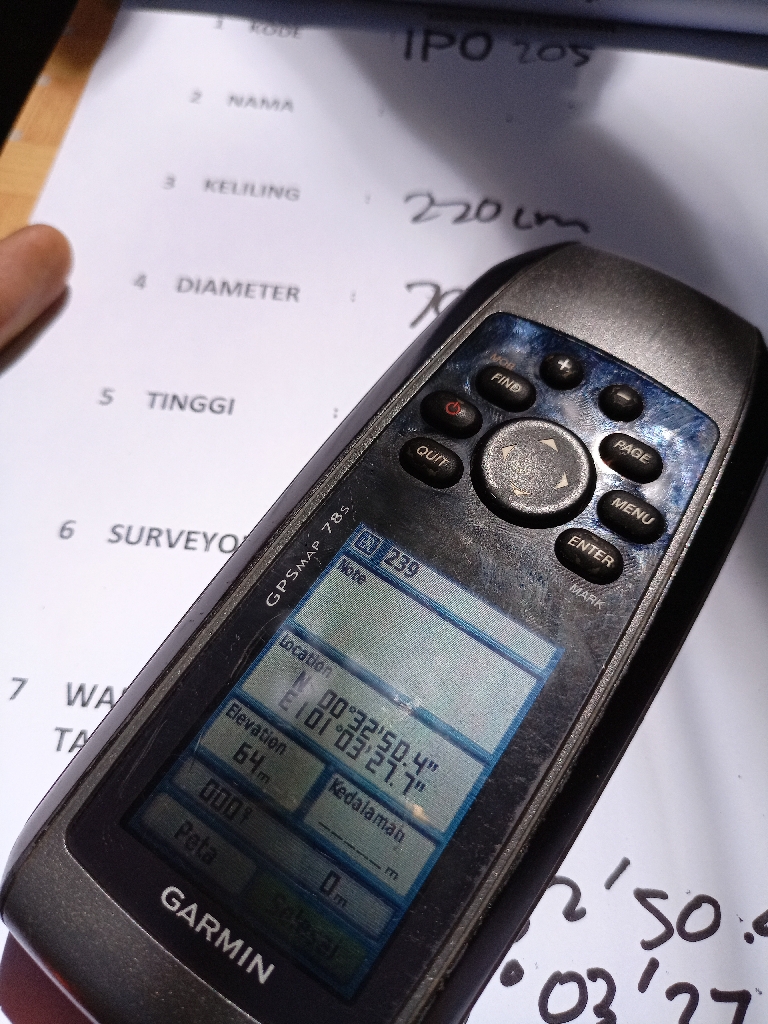 1 KODE IPO 205
2 NAMA :
3 KELILING : 220 cm
4 DIAMETER : 70
5 TINGGI :
6 SURVEYO
7 WA
TA
FIND
+
-
QUIT
PAGE
MENU
ENTER
MARK
GPSMAP 78s
239
Note
Location
N 00°32'50.4"
E101°03'27.7"
Elevation
64m
Kedalaman
_____m
000°
0m
Peta
Selesai
GARMIN
2'50.
°03'27